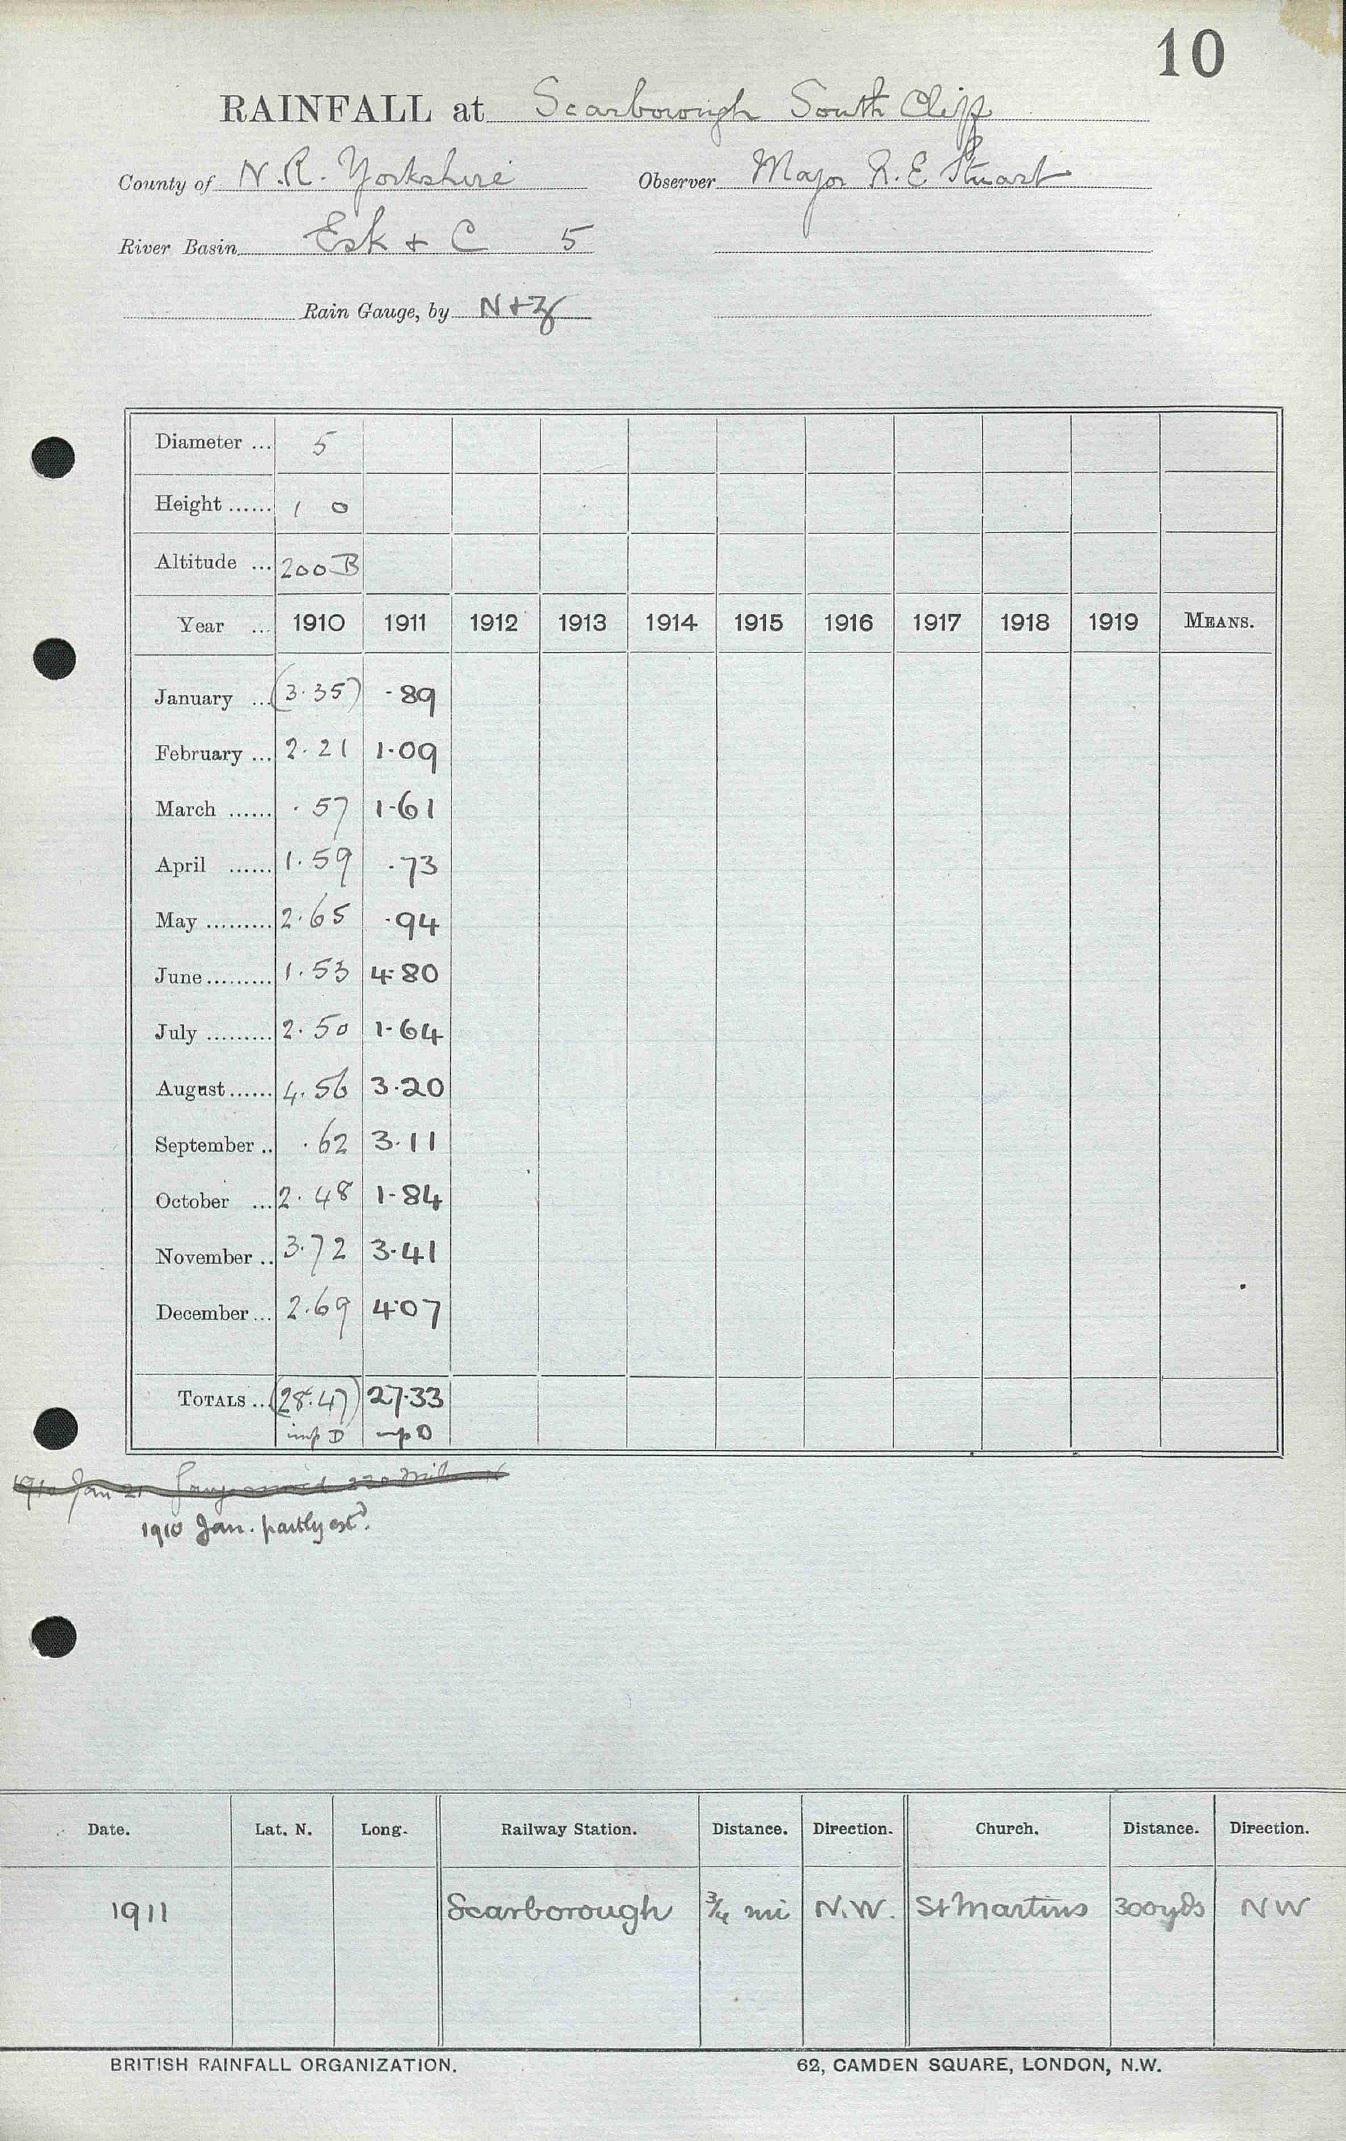 10
RAINFALL at Scarborough South Cliff
County of N.R. Yorkshire Observer Major R. E Stuart
River Basin Esk + C 5
Rain Gauge, by N+Z
Diameter ... 5
Height ...... 1 0
Altitude ... 200 B
Year ... 1910 1911 1912 1913 1914 1915 1916 1917 1918 1919 MEANS.
January ... (3.35) .89
February ... 2.21 1.09
March ...... .57 1.61
April ...... 1.59 .73
May ......... 2.65 .94
June ......... 1.53 4.80
July ......... 2.50 1.64
August ...... 4.56 3.20
September .. .62 3.11
October ... 2.48 1.84
November .. 3.72 3.41
December ... 2.69 4.07
TOTALS ... (28.47) 27.33
imp D imp D
1910 Jan 21
1910 Jan. partly estd.
Date. Lat. N. Long. Railway Station. Distance. Direction. Church. Distance. Direction.
1911 Scarborough ¾ mi N.W. St Martins 300yds NW
BRITISH RAINFALL ORGANIZATION. 62, CAMDEN SQUARE, LONDON, N.W.